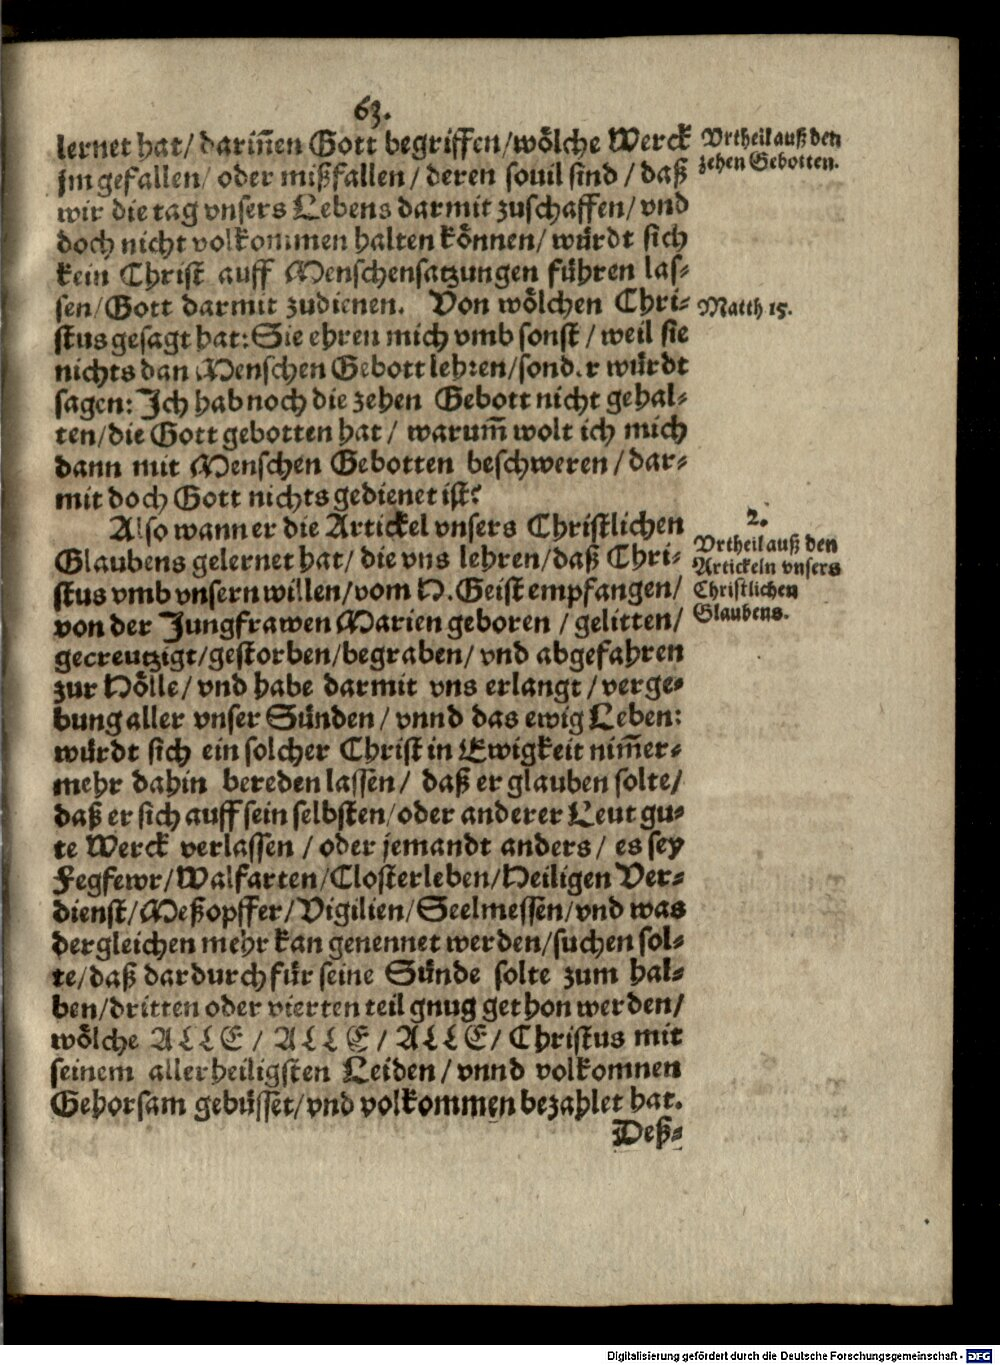 63.
lernet hat/ darinnen Gott begriffen/ wölche Werck
jm gefallen/ oder mißfallen/ deren souil sind/ daß
wir die tag vnsers Lebens darmit zuschaffen/ vnd
doch nicht volkommen halten können/ würdt sich
kein Christ auff Menschensatzungen führen las-
sen/ Gott darmit zudienen. Von wölchen Chri-
stus gesagt hat: Sie ehren mich vmb sonst/ weil sie
nichts dan Menschen Gebott lehren/ sonder würdt
sagen: Ich hab noch die zehen Gebott nicht gehal-
ten/ die Gott gebotten hat/ warum̃ wolt ich mich
dann mit Menschen Gebotten beschweren/ dar-
mit doch Gott nichts gedienet ist?
Also wann er die Artickel vnsers Christlichen
Glaubens gelernet hat/ die vns lehren/ daß Chri-
stus vmb vnsern willen/ vom H. Geist empfangen/
von der Jungfrawen Marien geboren/ gelitten/
gecreutzigt/ gestorben/ begraben/ vnd abgefahren
zur Hölle/ vnd habe darmit vns erlangt/ verge-
bung aller vnser Sünden/ vnnd das ewig Leben:
würdt sich ein solcher Christ in Ewigkeit nim̃er-
mehr dahin bereden lassen/ daß er glauben solte/
daß er sich auff sein selbsten/ oder anderer Leut gu-
te Werck verlassen/ oder jemandt anders/ es sey
Fegfewr/ Walfarten/ Closterleben/ Heiligen Ver-
dienst/ Meßopffer/ Vigilien/ Seelmessen/ vnd was
dergleichen mehr kan genennet werden/ suchen sol-
te/ daß dardurch für seine Sünde solte zum hal-
ben/ dritten oder vierten teil gnug gethon werden/
wölche ALLE/ ALLE/ ALLE/ Christus mit
seinem allerheiligsten Leiden/ vnnd volkomnen
Gehorsam gebüsset/ vnd volkommen bezahlet hat.
Deß-
Vrtheil auß den
zehen Gebotten.
Matth 15.
2.
Vrtheil auß den
Artickeln vnsers
Christlichen
Glaubens.
Digitalisierung gefördert durch die Deutsche Forschungsgemeinschaft - DFG